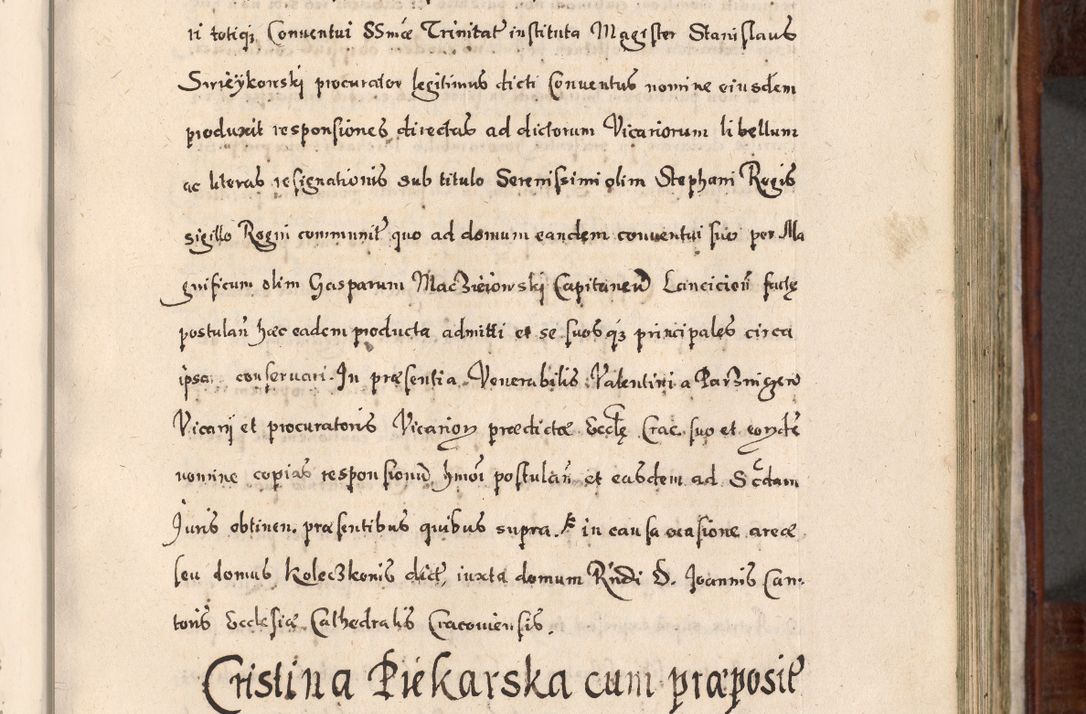 ri totiqȝ Conventui SSmæ Trinitat̃ instituta Magister Stanislaus
Swieÿkowski procurator legitimus dicti Conventus nomine eiusdem
produxit responsiones directas ad dictorum Vicariorum libellum
ac literas resignationis sub titulo Serenissimi olim Stephani Regis
sigillo Regni communit̃ quo ad domum eandem conventui suo per Ma
gnificum olim Gasparum Maczieiowski Capitaneũ Lancicieñ factę
postulañ hæc eadem producta admitti et se suosqȝ principales circa
ipsa conservari. In præsentia Venerabilis Valentini a Parznigew
Vicarij et procuratoris Vicariorꝝ prædictæ Eccłę Crac. suo et eorꝝdẽ
nomine copias responsionũ hmõi postulañ et easdem ad Scdam
Juris obtinen. præsentibus quibus supra. in causa occasione areæ
seu domus Koleczkonis dict̃, iuxta domum Rñdi D. Joannis Can-
toris Ecclesiæ Cathedralis Cracoviensis.
Cristina Piekarska cum præposit̃